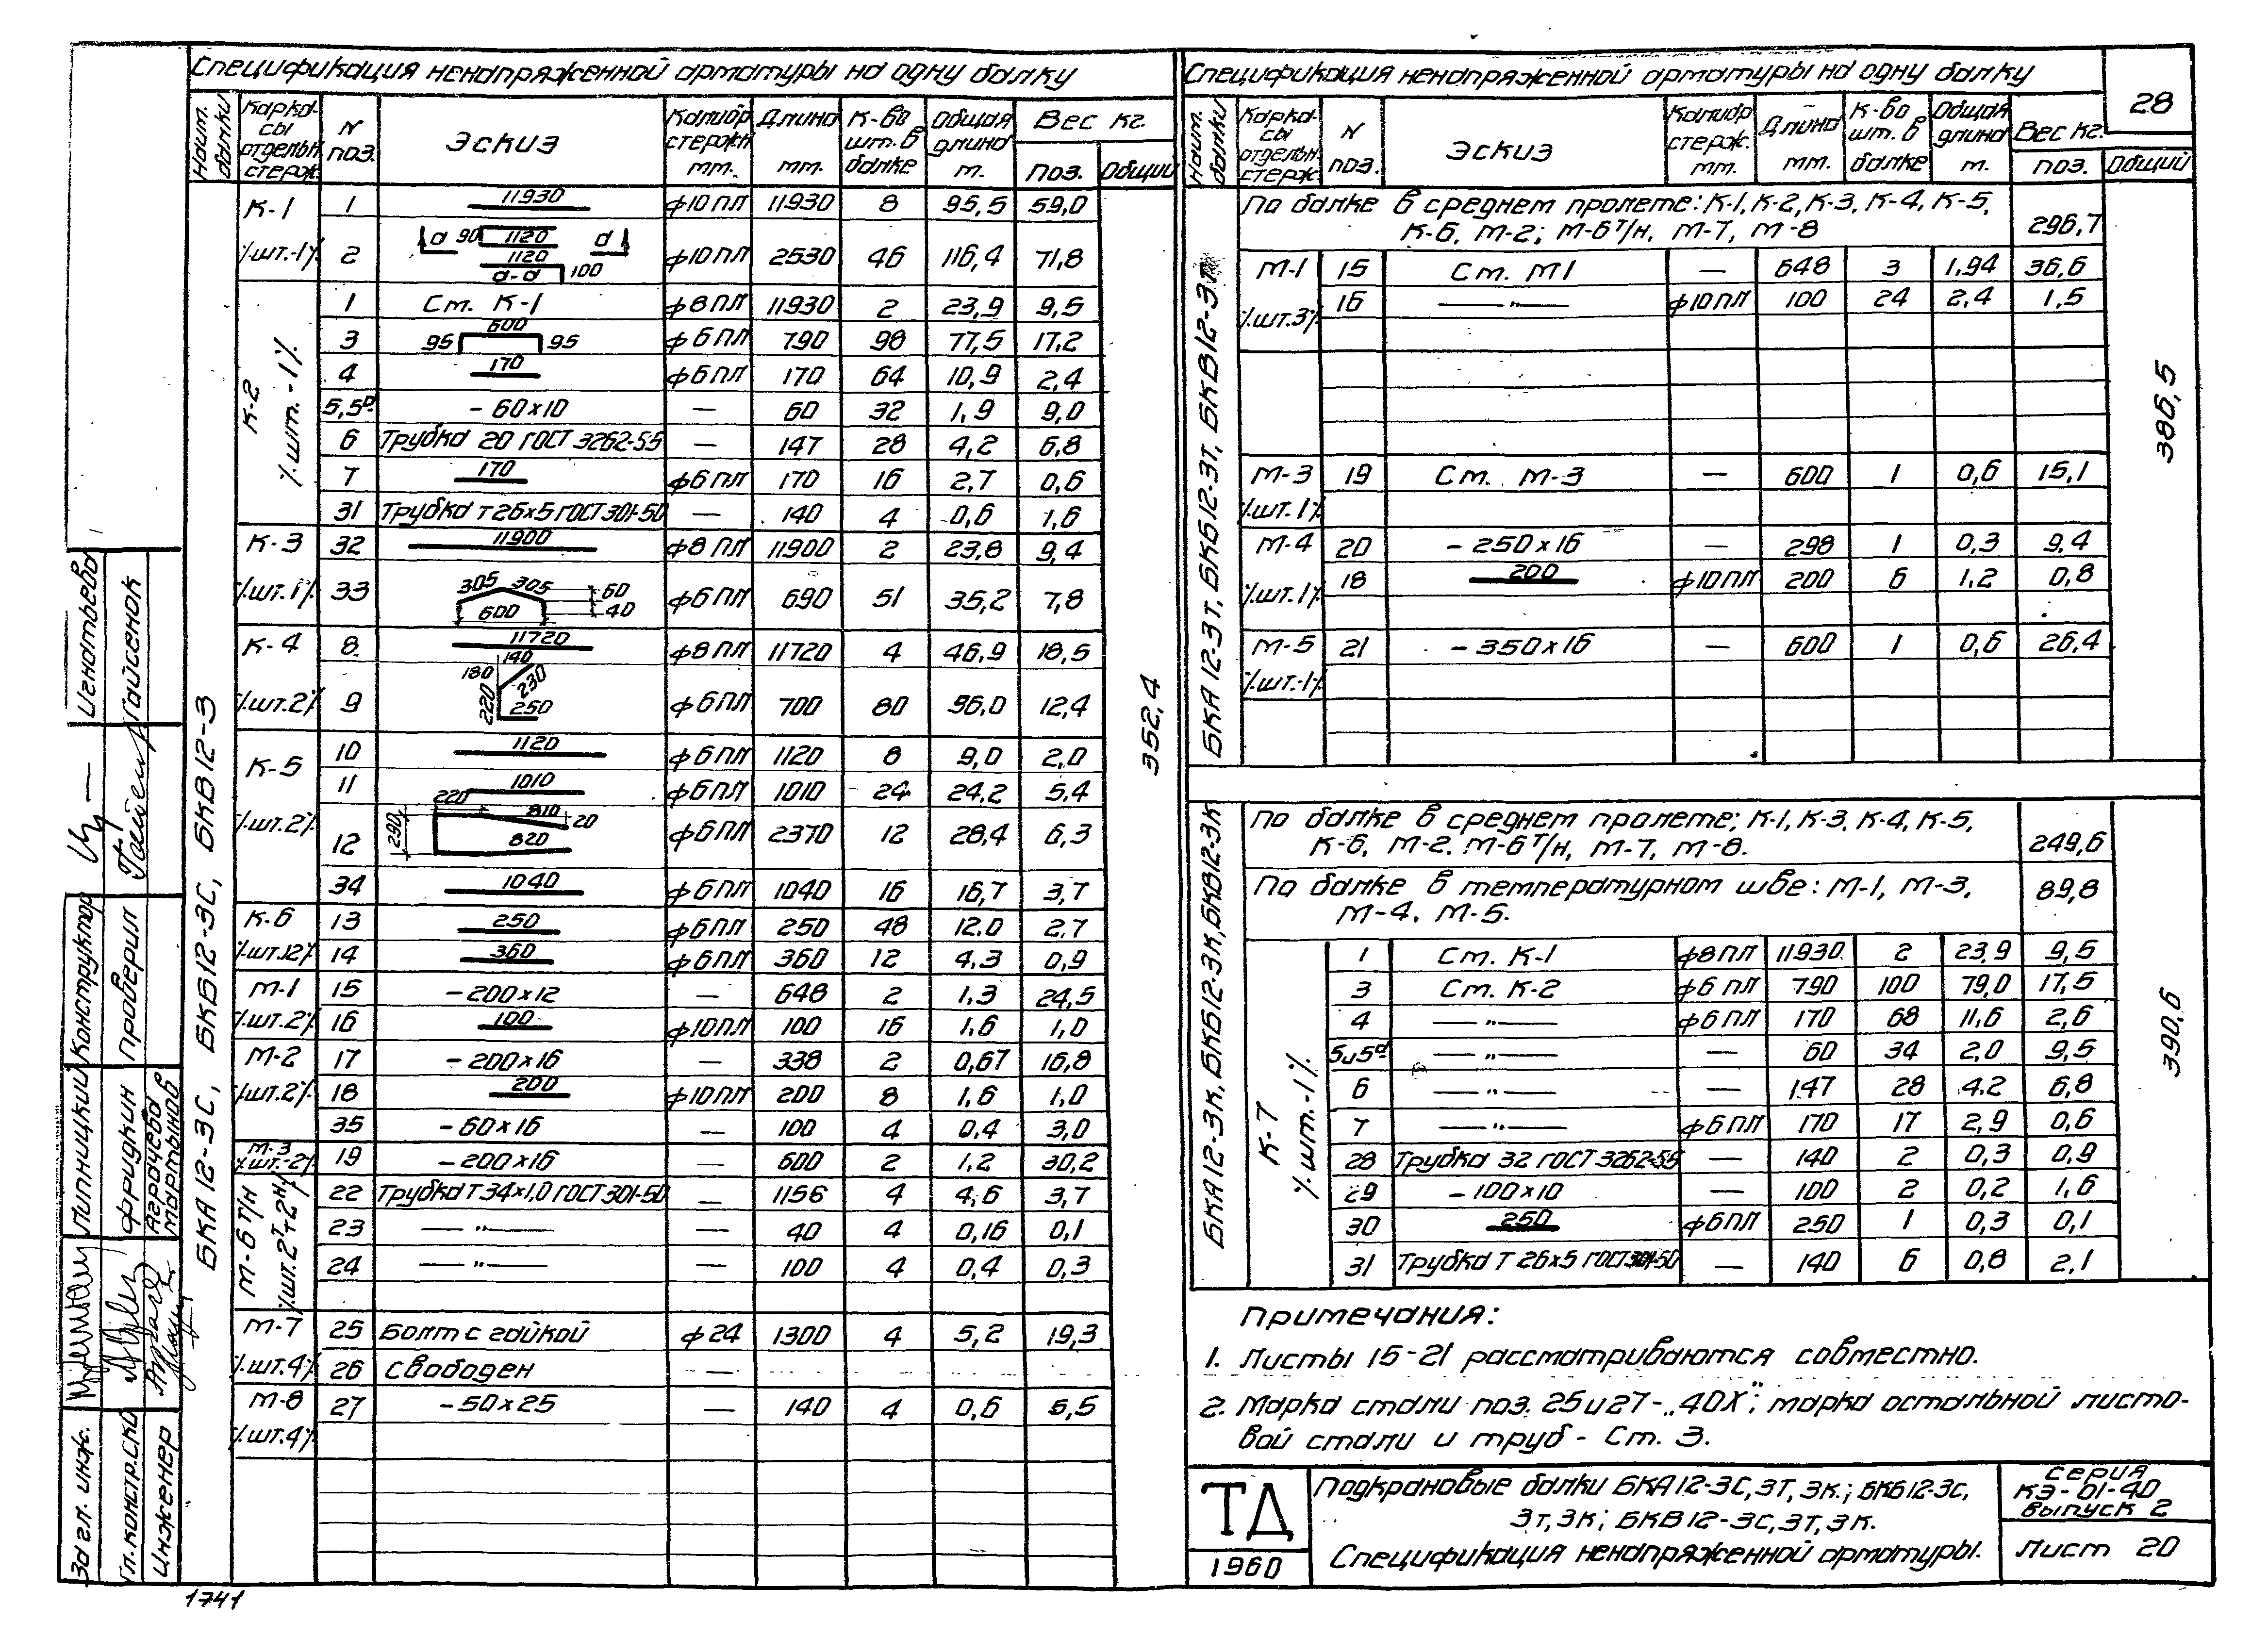 Спецификация ненапряженной арматуры на одну балку
Наим. балки | Каркасы отдельн. стерж. | N поз. | Эскиз | Калибр стержн. мм. | Длина мм. | К-во шт. в балке | Общая длина м. | Вес кг. поз. | Общий
БКА 12-3С, БКБ12-3С, БКВ12-3
К-1 | 1 | 11930 | ф10ПЛ | 11930 | 8 | 95,5 | 59,0
/.шт.-1/. | 2 | d 90 1120 d 1120 d-d 100 | ф10ПЛ | 2530 | 46 | 116,4 | 71,8
К-2 /.шт.-1/. | 1 | Ст. К-1 | ф8ПЛ | 11930 | 2 | 23,9 | 9,5
3 | 95 600 95 | ф6ПЛ | 790 | 98 | 77,5 | 17,2
4 | 170 | ф6ПЛ | 170 | 64 | 10,9 | 2,4
5,5а | -60х10 | — | 60 | 32 | 1,9 | 9,0
6 | Трубка 20 ГОСТ 3262-55 | — | 147 | 28 | 4,2 | 6,8
7 | 170 | ф6ПЛ | 170 | 16 | 2,7 | 0,6
31 | Трубка т26х5 ГОСТ 301-50 | — | 140 | 4 | 0,6 | 1,6
К-3 | 32 | 11900 | ф8ПЛ | 11900 | 2 | 23,8 | 9,4
/.шт.1/. | 33 | 305 305 60 600 40 | ф6ПЛ | 690 | 51 | 35,2 | 7,8
К-4 | 8 | 11720 | ф8ПЛ | 11720 | 4 | 46,9 | 18,5
/.шт.2/. | 9 | 140 180 230 220 250 | ф6ПЛ | 700 | 80 | 56,0 | 12,4
К-5 | 10 | 1120 | ф6ПЛ | 1120 | 8 | 9,0 | 2,0
11 | 1010 | ф6ПЛ | 1010 | 24 | 24,2 | 5,4
/.шт.2/. | 12 | 220 810 20 290 820 | ф6ПЛ | 2370 | 12 | 28,4 | 6,3
34 | 1040 | ф6ПЛ | 1040 | 16 | 16,7 | 3,7
К-6 | 13 | 250 | ф6ПЛ | 250 | 48 | 12,0 | 2,7
/.шт.12/. | 14 | 360 | ф6ПЛ | 360 | 12 | 4,3 | 0,9
М-1 | 15 | -200х12 | — | 648 | 2 | 1,3 | 24,5
/.шт.2/. | 16 | 100 | ф10ПЛ | 100 | 16 | 1,6 | 1,0
М-2 | 17 | -200х16 | — | 338 | 2 | 0,67 | 16,8
/.шт.2/. | 18 | 200 | ф10ПЛ | 200 | 8 | 1,6 | 1,0
35 | -60х16 | — | 100 | 4 | 0,4 | 3,0
М-3 /.шт.-2/. | 19 | -200х16 | — | 600 | 2 | 1,2 | 30,2
М-6 Т/Н /.шт.2Т+2Н/. | 22 | Трубка Т34х1,0 ГОСТ 301-50 | — | 1156 | 4 | 4,6 | 3,7
23 | —"— | — | 40 | 4 | 0,16 | 0,1
24 | —"— | — | 100 | 4 | 0,4 | 0,3
М-7 | 25 | Болт с гайкой | ф24 | 1300 | 4 | 5,2 | 19,3
/.шт.4/. | 26 | Свободен | —
М-8 | 27 | -50х25 | — | 140 | 4 | 0,6 | 5,5
/.шт.4/.
352,4
Спецификация ненапряженной арматуры на одну балку
28
Наим. балки | Каркасы отдельн. стерж. | N поз. | Эскиз | Калибр стерж. мм. | Длина мм. | К-во шт. в балке | Общая длина м. | Вес кг. поз. | Общий
БКА 12-3Т, БКБ12-3Т, БКВ12-3Т
По балке в среднем пролете: К-1, К-2, К-3, К-4, К-5,
К-6, М-2; М-6Т/Н, М-7, М-8 | 296,7
М-1 | 15 | Ст. М1 | — | 648 | 3 | 1,94 | 36,6
16 | —"— | ф10ПЛ | 100 | 24 | 2,4 | 1,5
/.шт.3/.
М-3 | 19 | Ст. М-3 | — | 600 | 1 | 0,6 | 15,1
/.шт.1/.
М-4 | 20 | -250х16 | — | 298 | 1 | 0,3 | 9,4
/.шт.1/. | 18 | 200 | ф10ПЛ | 200 | 6 | 1,2 | 0,8
М-5 | 21 | -350х16 | — | 600 | 1 | 0,6 | 26,4
/.шт.-1/.
386,5
БКА 12-3К, БКБ12-3К, БКВ12-3К
По балке в среднем пролете; К-1, К-3, К-4, К-5,
К-6, М-2. М-6Т/Н, М-7, М-8. | 249,6
По балке в температурном шве: М-1, М-3,
М-4, М-5. | 89,8
К-7 /.шт.-1/. | 1 | Ст. К-1 | ф8ПЛ | 11930 | 2 | 23,9 | 9,5
3 | Ст. К-2 | ф6ПЛ | 790 | 100 | 79,0 | 17,5
4 | —"— | ф6ПЛ | 170 | 68 | 11,6 | 2,6
5и5а | —"— | — | 60 | 34 | 2,0 | 9,5
6 | —"— | — | 147 | 28 | 4,2 | 6,8
7 | —"— | ф6ПЛ | 170 | 17 | 2,9 | 0,6
28 | Трубка 32 ГОСТ 3262-55 | — | 140 | 2 | 0,3 | 0,9
29 | -100х10 | — | 100 | 2 | 0,2 | 1,6
30 | 250 | ф6ПЛ | 250 | 1 | 0,3 | 0,1
31 | Трубка Т 26х5 ГОСТ 301-50 | — | 140 | 6 | 0,8 | 2,1
390,6
Примечания:
1. Листы 15-21 рассматриваются совместно.
2. Марка стали поз. 25 и 27 - „40Х"; марка остальной листо-
вой стали и труб - Ст. 3.
ТД
1960
Подкрановые балки БКА 12-3С, 3Т, 3К.; БКБ12-3С,
3т, 3К; БКВ 12-3С, 3Т, 3К.
Спецификация ненапряженной арматуры.
серия
КЭ-01-40
выпуск 2
Лист 20
Игнатьева
Гайсенок
Конструктор
Проверил
Липницкий
Фридкин
Аграчева
Мартынов
Зд гл. инж.
Гл.констр.СКО
Инженер
1741